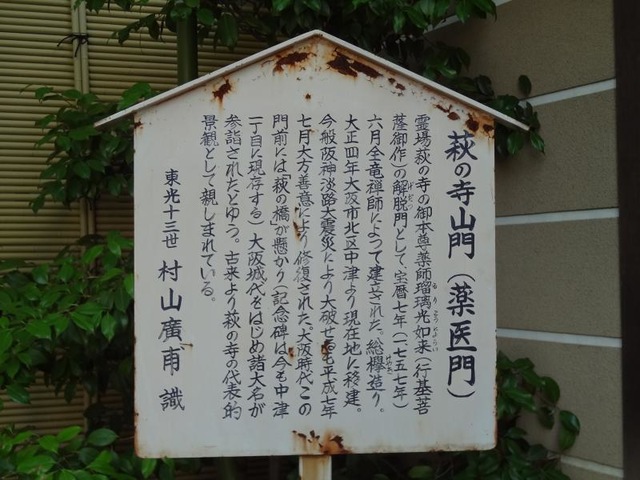 萩の寺山門（薬医門）
霊場萩の寺の御本尊薬師瑠璃光如来（行基菩
薩御作）の解脱門として、宝暦七年（一七五七年）
六月全竜禅師によって建立された。総欅造り。
大正四年大阪市北区中津より現在地に移建。
今般阪神淡路大震災により大破せるも平成七年
七月大方善意により修復された。大阪時代この
門前には「萩の橋」が懸かり（記念碑は今も中津
一丁目に現存する）大阪城代をはじめ諸大名が
参詣されたとゆう。古来より萩の寺の代表的
景観として親しまれている。
東光十三世 村山廣甫 識